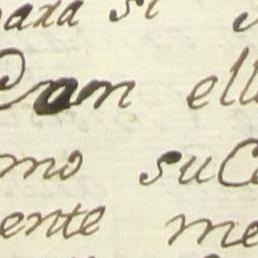 para si
Com ell
mo suc
ente me